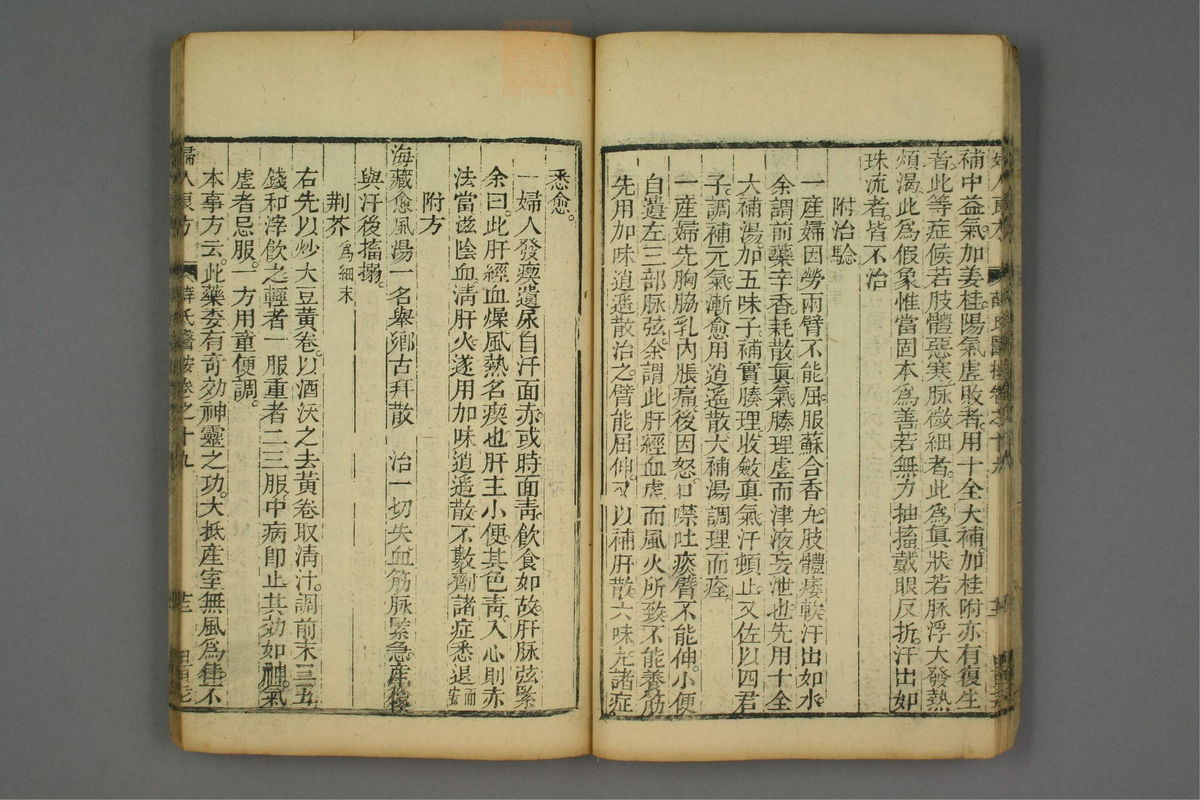 補中益氣加姜桂陽氣虛敗者用十全大補加桂附亦有復生
者此等症候若肢體惡寒脉微細者此為眞狀若脉浮大發熱
煩渴此爲假象惟當固本爲善若無力抽搐戴眼反折汗出如
珠流者皆不治
附治驗
一產婦因勞兩臂不能屈服蘇合香丸肢體痿軟汗出如水
余謂前藥辛香耗散眞氣腠理虛而津液妄泄也先用十全
大補湯加五味子補實腠理收斂真氣汗頓止又佐以四君
子調補元氣漸愈用逍遙散大補湯調理而痊
一產婦先胸脇乳內脹痛後因怒口噤吐痰臂不能伸小便
自遺左三部脉弦余謂此肝經血虛而風火所致不能養筋
先用加味逍遙散治之臂能屈伸又以補肝散六味丸諸症
悉愈。
一婦人發瘈遺尿自汗面赤或時面靑飮食如故肝脉弦緊
余曰此肝經血燥風熱名瘈也肝主小便其色靑入心則赤
法當滋陰血淸肝火遂用加味逍遙散不數劑諸症悉退而安
附方
海藏愈風湯一名舉卿古拜散 治一切失血筋脉緊急產後
與汗後搐搦。
荆芥爲細末
右先以炒大豆黃卷以酒沃之去黃卷取淸汁調前末三五
錢和滓飮之輕者一服重者二三服中病卽止其効如神氣
虛者忌服一方用童便調。
本事方云此藥委有奇効神靈之功大抵產室無風爲佳不
婦人良方 薛氏醫按卷之十九